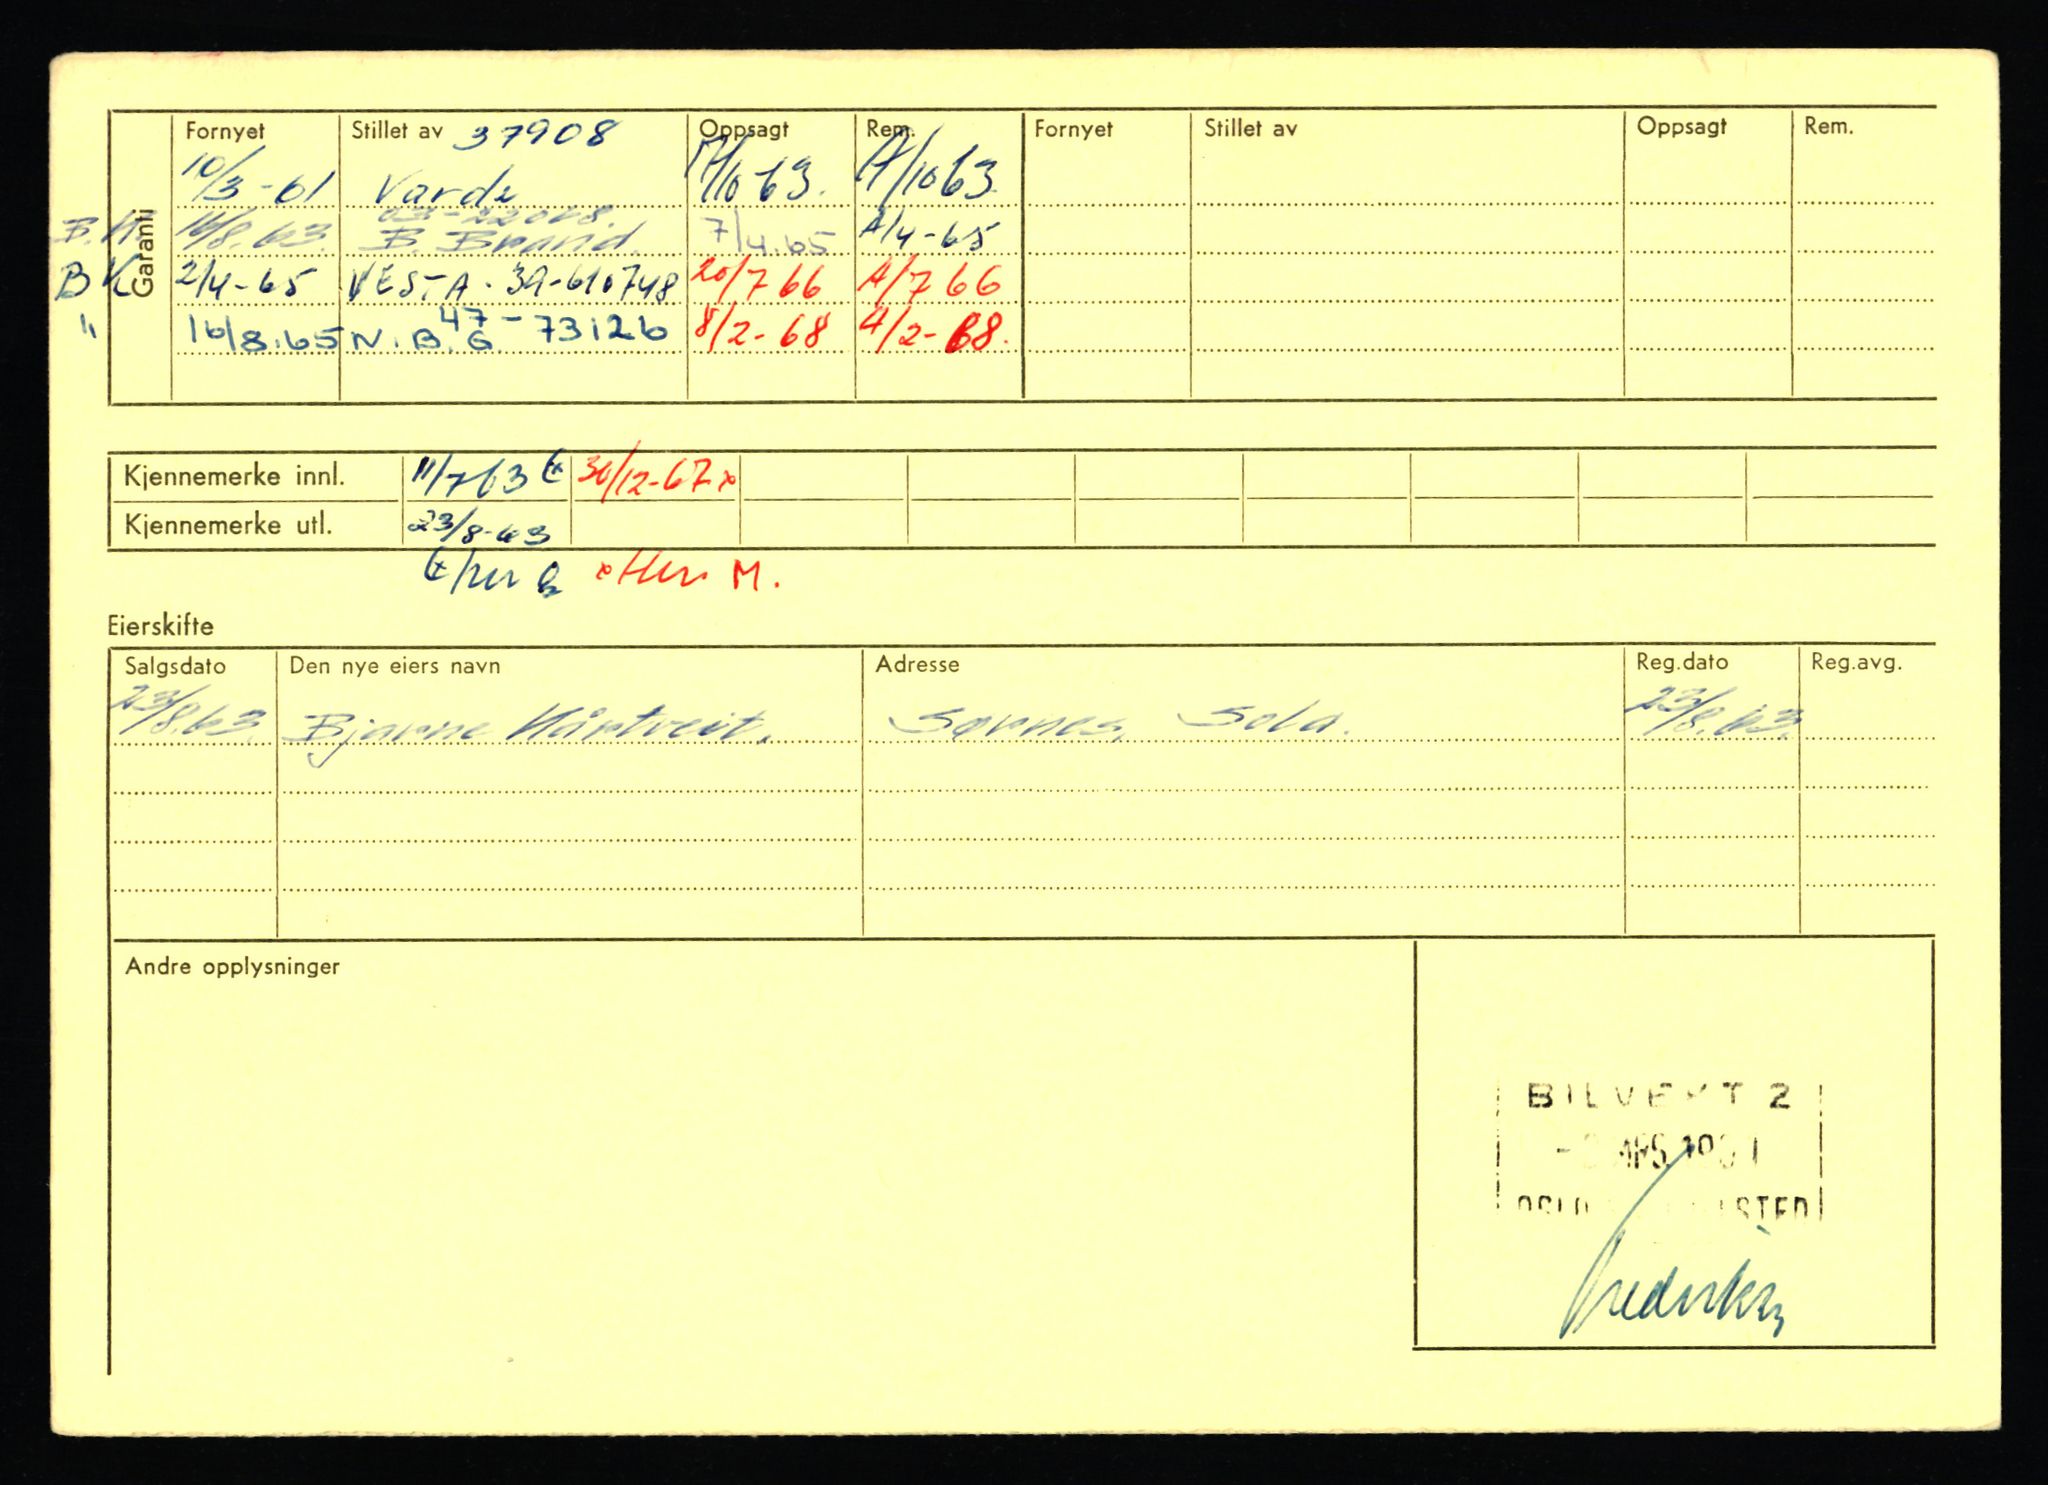 Garanti
Fornyet Stillet av 37908 Oppsagt Rem. Fornyet Stillet av Oppsagt Rem.
10/3-61 Varde /10 63. A/10 63
B. 16/8.63. B. Brand. 7/4.65 A/4-65
BK 2/4-65 VESTA. 39-610748 20/7 66 A/7 66
" 16/8.65 N.B.G. 47-73126 8/2-68 A/2-68.
Kjennemerke innl. 11/7 63 30/12-67 x
Kjennemerke utl. 23/8-63
x Her M.
Eierskifte
Salgsdato Den nye eiers navn Adresse Reg.dato Reg.avg.
23/8.63. Bjarne Hårtveit. Sørnes, Sola. 23/8.63.
Andre opplysninger
BILVEKT 2
OSLO